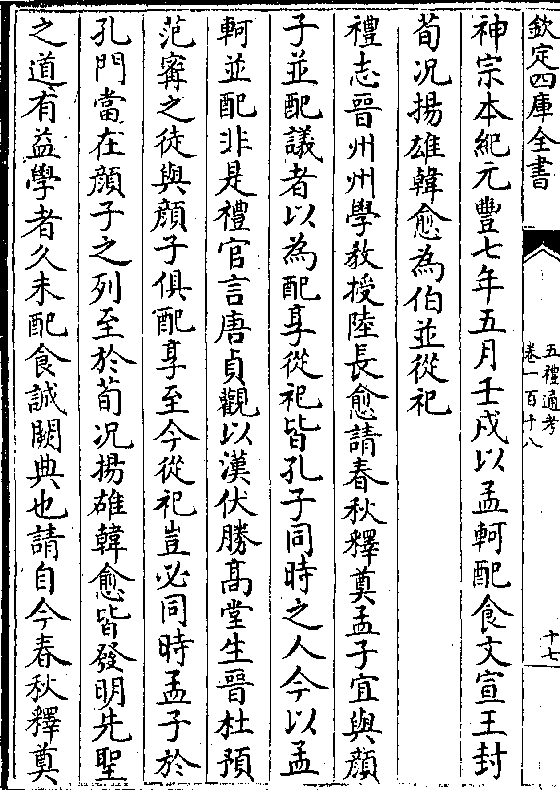 欽定四庫全書
五禮通考
卷一百十八
十七
神宗本紀元豐七年五月壬戌以孟軻配食文宣王封
荀況揚雄韓愈為伯並從祀
禮志晉州州學教授陸長愈請春秋釋奠孟子宜與顔
子並配議者以為配享從祀皆孔子同時之人今以孟
軻並配非是禮官言唐貞觀以漢伏勝髙堂生晉杜預
范甯之徒與顔子俱配享至今從祀豈必同時孟子於
孔門當在顔子之列至於荀況揚雄韓愈皆發明先聖
之道有益學者久未配食誠闕典也請自今春秋釋奠